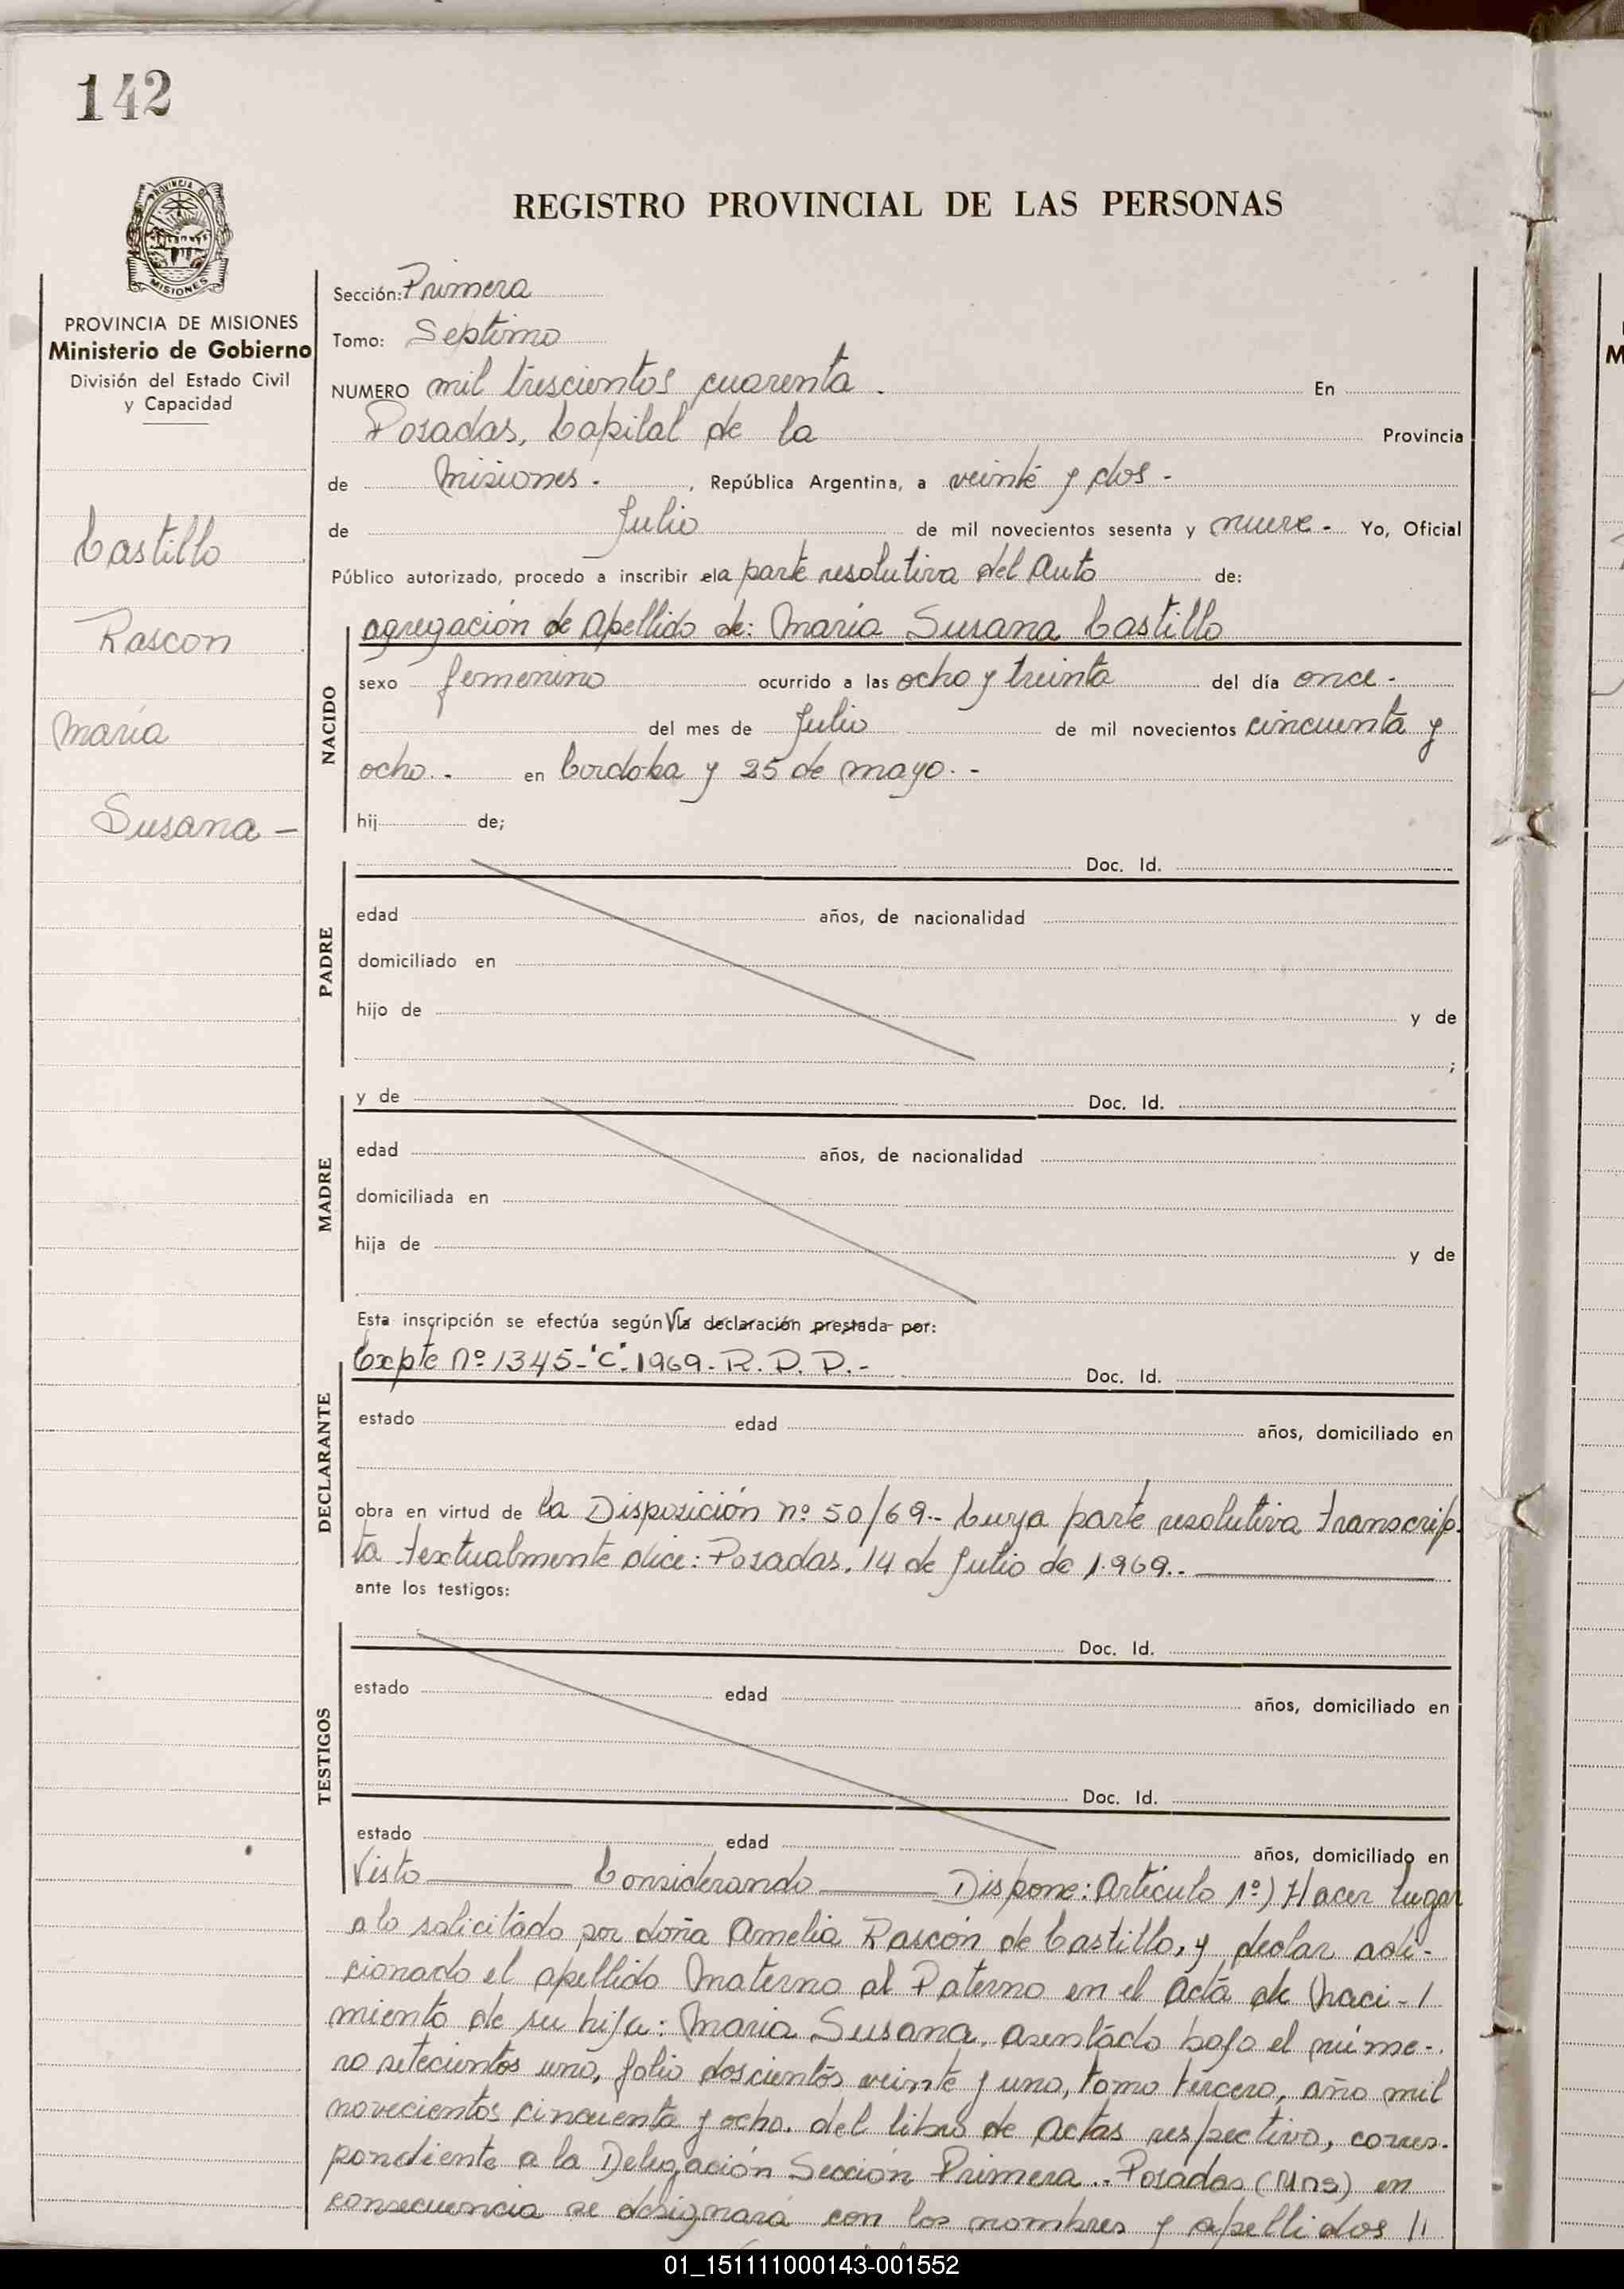 142
PROVINCIA DE
MISIONES
REGISTRO PROVINCIAL DE LAS PERSONAS
PROVINCIA DE MISIONES
Ministerio de Gobierno
División del Estado Civil
y Capacidad
Castillo
Rascon
María
Susana -
Sección: Primera
Tomo: Septimo
NUMERO mil trescientos cuarenta . En
Posadas, Capital de la Provincia
de Misiones - , República Argentina, a veinte y dos -
de Julio de mil novecientos sesenta y nueve - Yo, Oficial
Público autorizado, procedo a inscribir el a parte resolutiva del Auto de:
agregación de Apellido de: María Susana Castillo
NACIDO
sexo femenino ocurrido a las ocho y treinta del día once -
del mes de Julio de mil novecientos cincuenta y
ocho. - en Cordoba y 25 de mayo. -
hij de;
PADRE
Doc. Id.
edad años, de nacionalidad
domiciliado en
hijo de y de
;
MADRE
y de Doc. Id.
edad años, de nacionalidad
domiciliada en
hija de y de
Esta inscripción se efectúa según la declaración prestada por:
DECLARANTE
Expte Nº 1345-"C"-1969- R. P. P. - Doc. Id.
estado edad años, domiciliado en
obra en virtud de la Disposición nº 50/69.- Cuya parte resolutiva transcrip-
ta textualmente dice: Posadas, 14 de Julio de 1.969..
ante los testigos:
TESTIGOS
Doc. Id.
estado edad años, domiciliado en
Doc. Id.
estado edad años, domiciliado en
Visto Considerando Dispone: Artículo 1º) Hacer lugar
a lo solicitado por doña Amelia Rascón de Castillo, y declar adi-
cionado el apellido Materno al Paterno en el Acta de Naci-/
miento de su hija: María Susana, asentado bajo el núme-
ro setecientos uno, folio doscientos veinte y uno, tomo tercero, año mil
novecientos cincuenta y ocho. del libro de Actas respectivo, corres-
pondiente a la Delegación Sección Primera.. Posadas (Mns) en
consecuencia se designará con los nombres y apellidos //
01_151111000143-001552